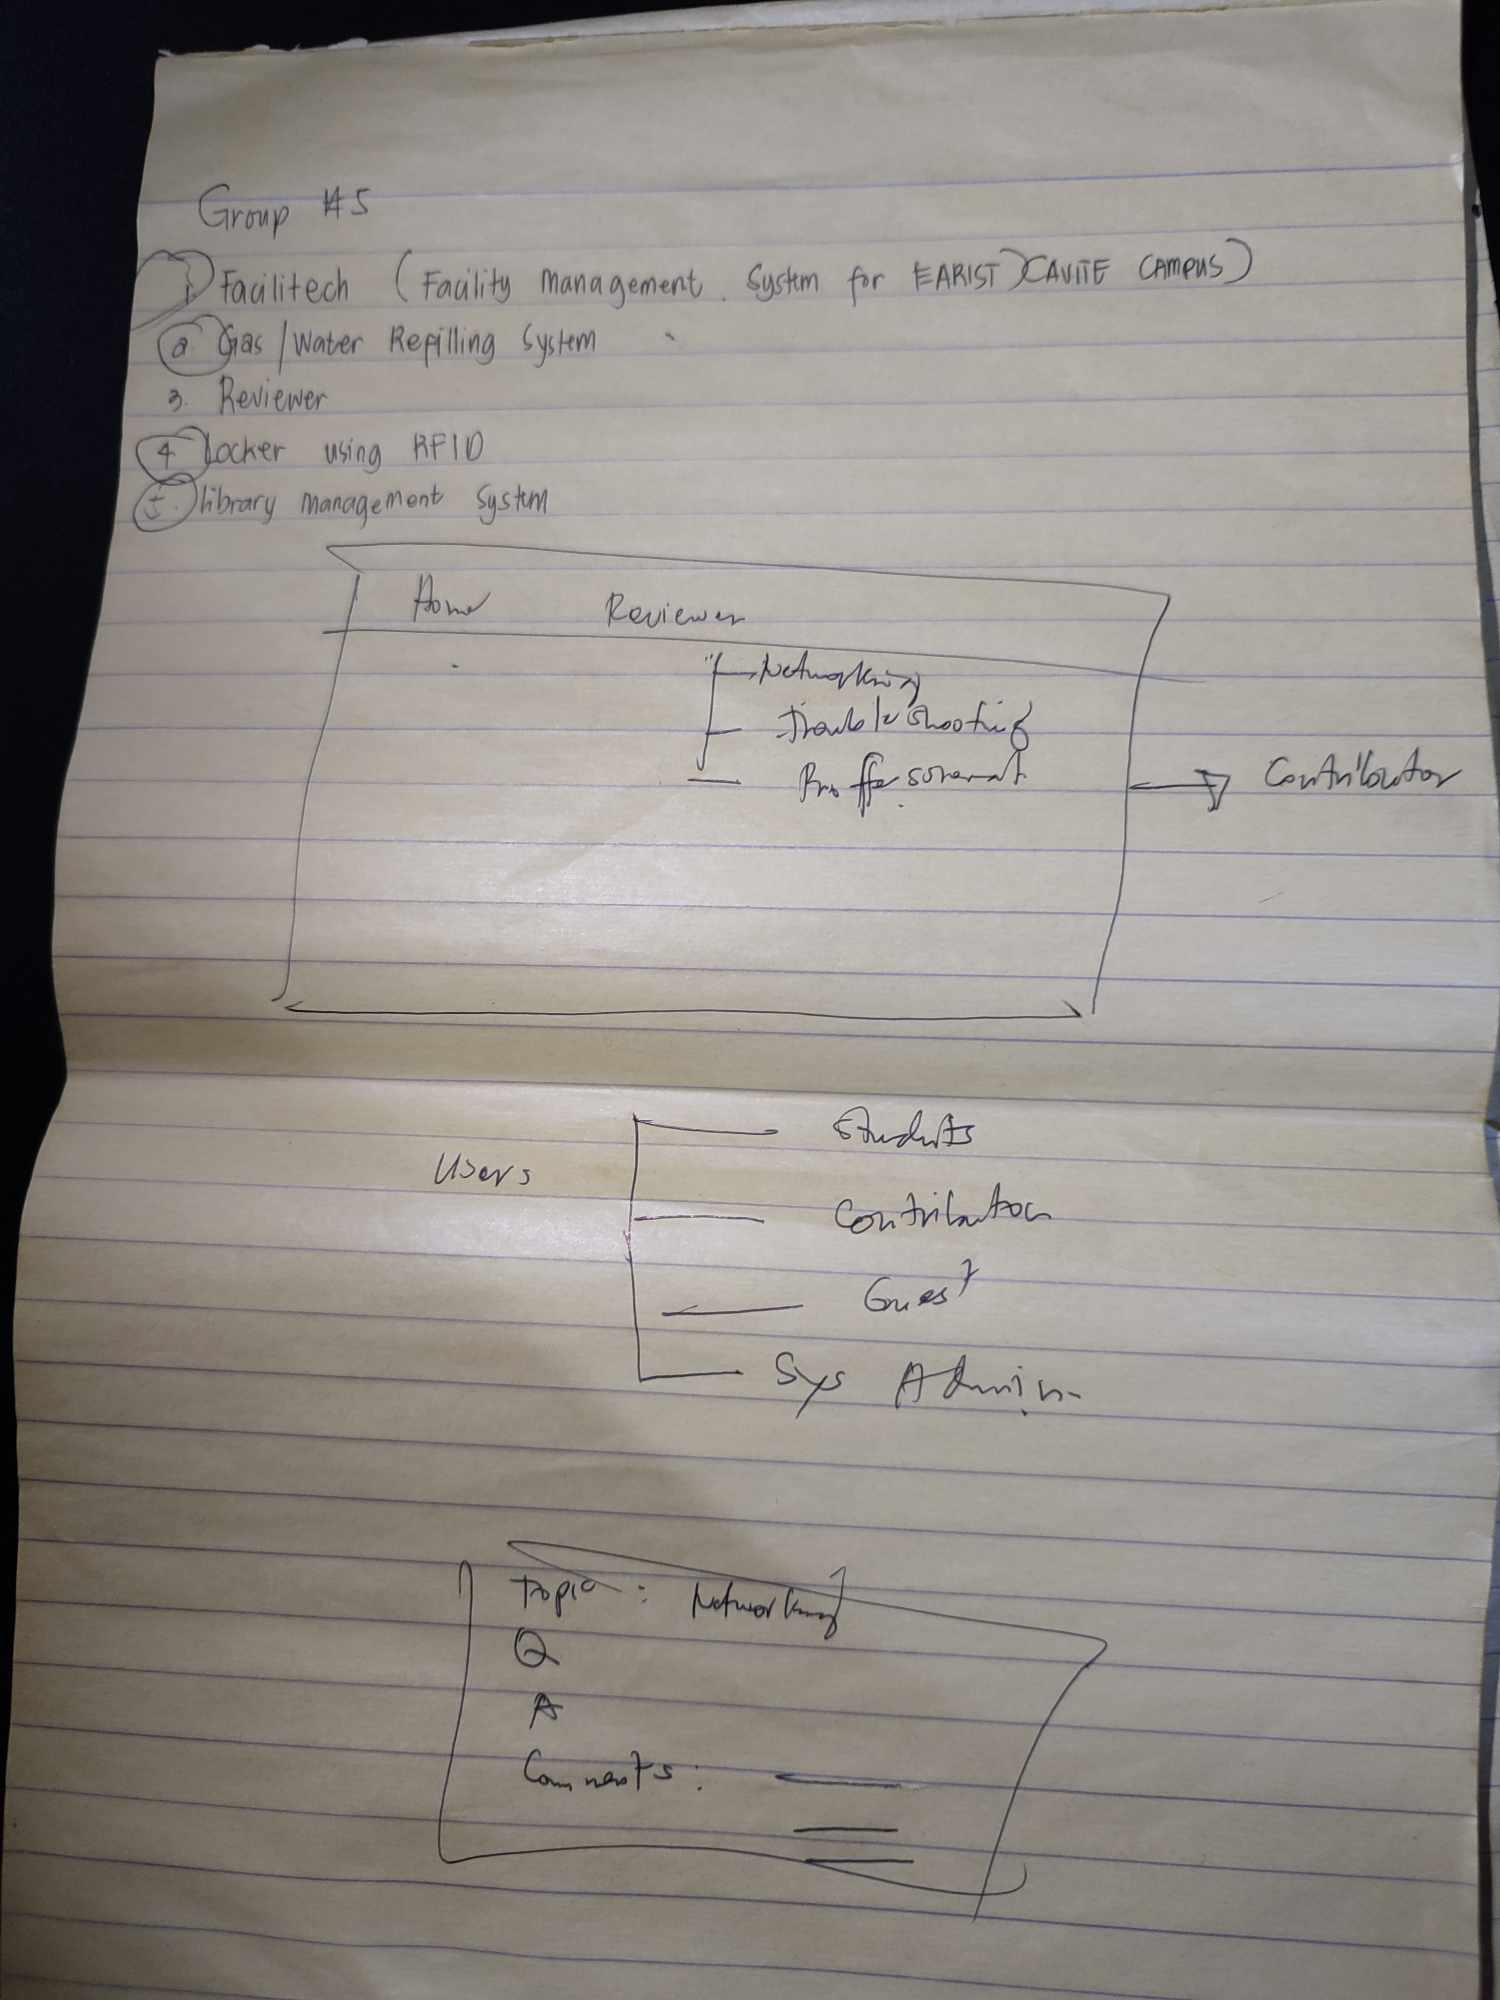 Group #5
1. Facilitech (Facility Management System for EARIST) CAVITE CAMPUS)
2. Gas/Water Refilling System
3. Reviewer
4 Locker using RFID
5. library management system
Home Reviewer
Networking
Troubleshooting
Contributor
Users
Students
Contributor
Guest
Sys Admin
Topic: Networking
Q
A
Comments: